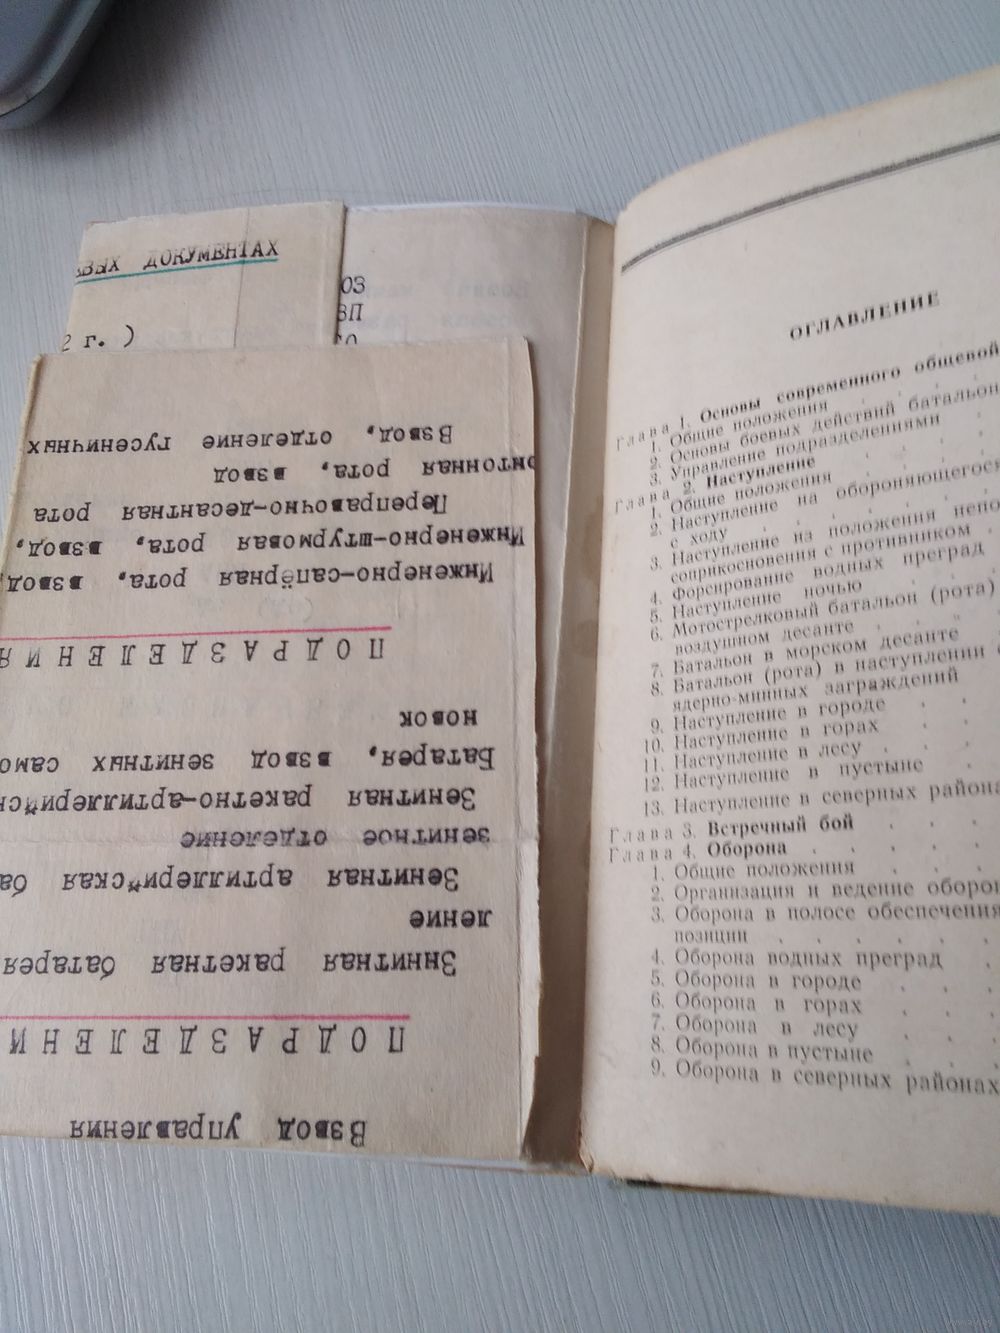 ВЫХ ДОКУМЕНТАХ
2 г. )
ОЗ
ВП
Взвод управления
ПОДРАЗДЕЛЕНИ
Зннитная ракетная батарея
ление
Зенитная артиллерийская ба
зенитное отделение
Зенитная ракетно-артиллерийск
Батарея, взвод зенитных само
новок
ПОДРАЗДЕЛЕНИЯ
Инженерно-сапёрная рота, взвод,
Инженерно-штурмовая рота, взвод,
Переправочно-десантная рота
онтонная рота, взвод
Взвод, отделение гусеничных
ОГЛАВЛЕНИЕ
Глава 1. Основы современного общевой
1. Общие положения
2. Основы боевых действий батальон
3. Управление подразделениями
Глава 2. Наступление
1. Общие положения
2. Наступление на обороняющегося
с ходу
3. Наступление из положения непо
соприкосновения с противником
4. Форсирование водных преград
5. Наступление ночью
6. Мотострелковый батальон (рота)
воздушном десанте
7. Батальон в морском десанте
8. Батальон (рота) в наступлении с
ядерно-минных заграждений
9. Наступление в городе
10. Наступление в горах
11. Наступление в лесу
12. Наступление в пустыне
13. Наступление в северных района
Глава 3. Встречный бой
Глава 4. Оборона
1. Общие положения
2. Организация и ведение оборон
3. Оборона в полосе обеспечения
позиции
4. Оборона водных преград
5. Оборона в городе
6. Оборона в горах
7. Оборона в лесу
8. Оборона в пустыне
9. Оборона в северных районах